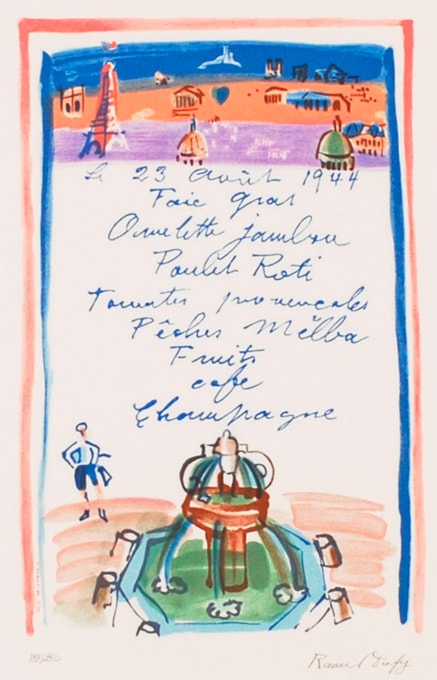 Le 23 Août 1944
Foie gras
Omelette jambon
Poulet Roti
Tomates provençales
Pêches Mělba
Fruits
café
Champagne
Raoul Dufy